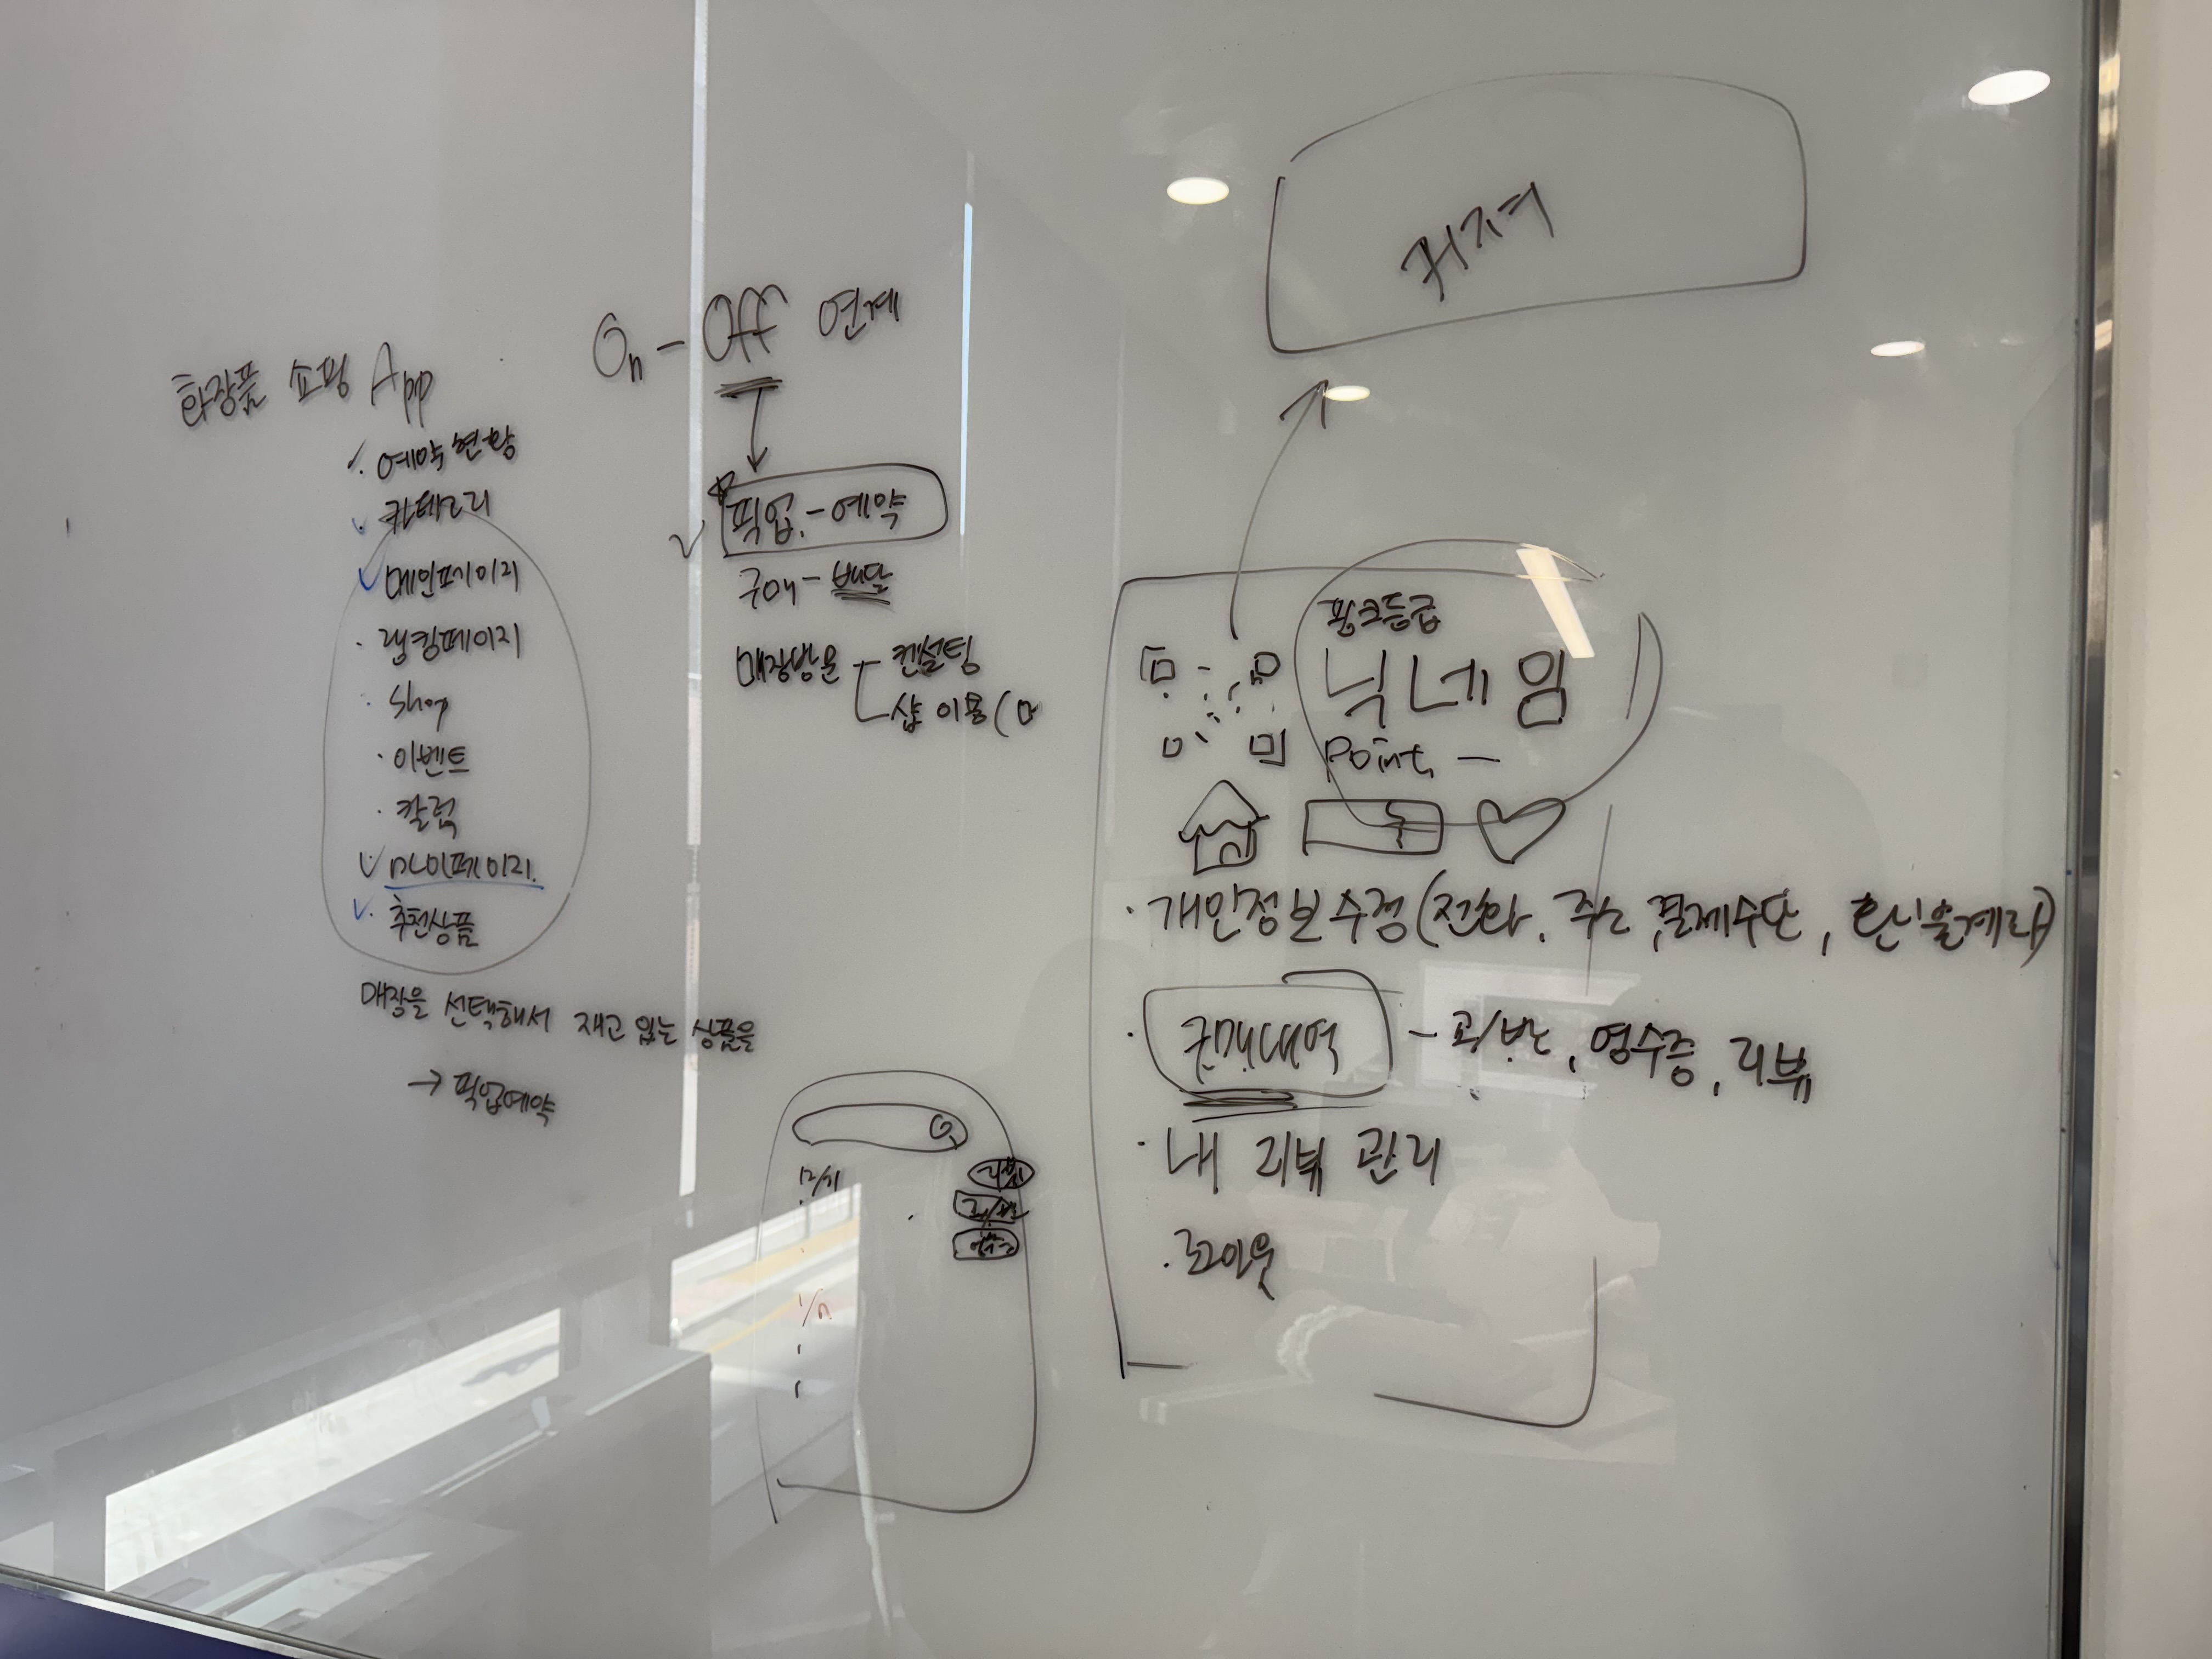 화장품 쇼핑 App
· 예약 현황
· 카테고리
메인페이지
· 랭킹페이지
· Shop
· 이벤트
· 칼럼
마이페이지.
· 추천상품
매장을 선택해서 재고 있는 상품을
→ 픽업예약
On - Off 연계
픽업. - 예약
구매 - 배달
매장방문 - 컨설팅
샵 이용 (
커지며
핑크등급
닉네임
Point —
· 개인정보수정 (전화, 주소, 결제수단, 환불계좌)
· 구매내역 - 교/반, 영수증, 리뷰
· 내 리뷰 관리
· 로그아웃
12/21
리뷰
교/반
영수증